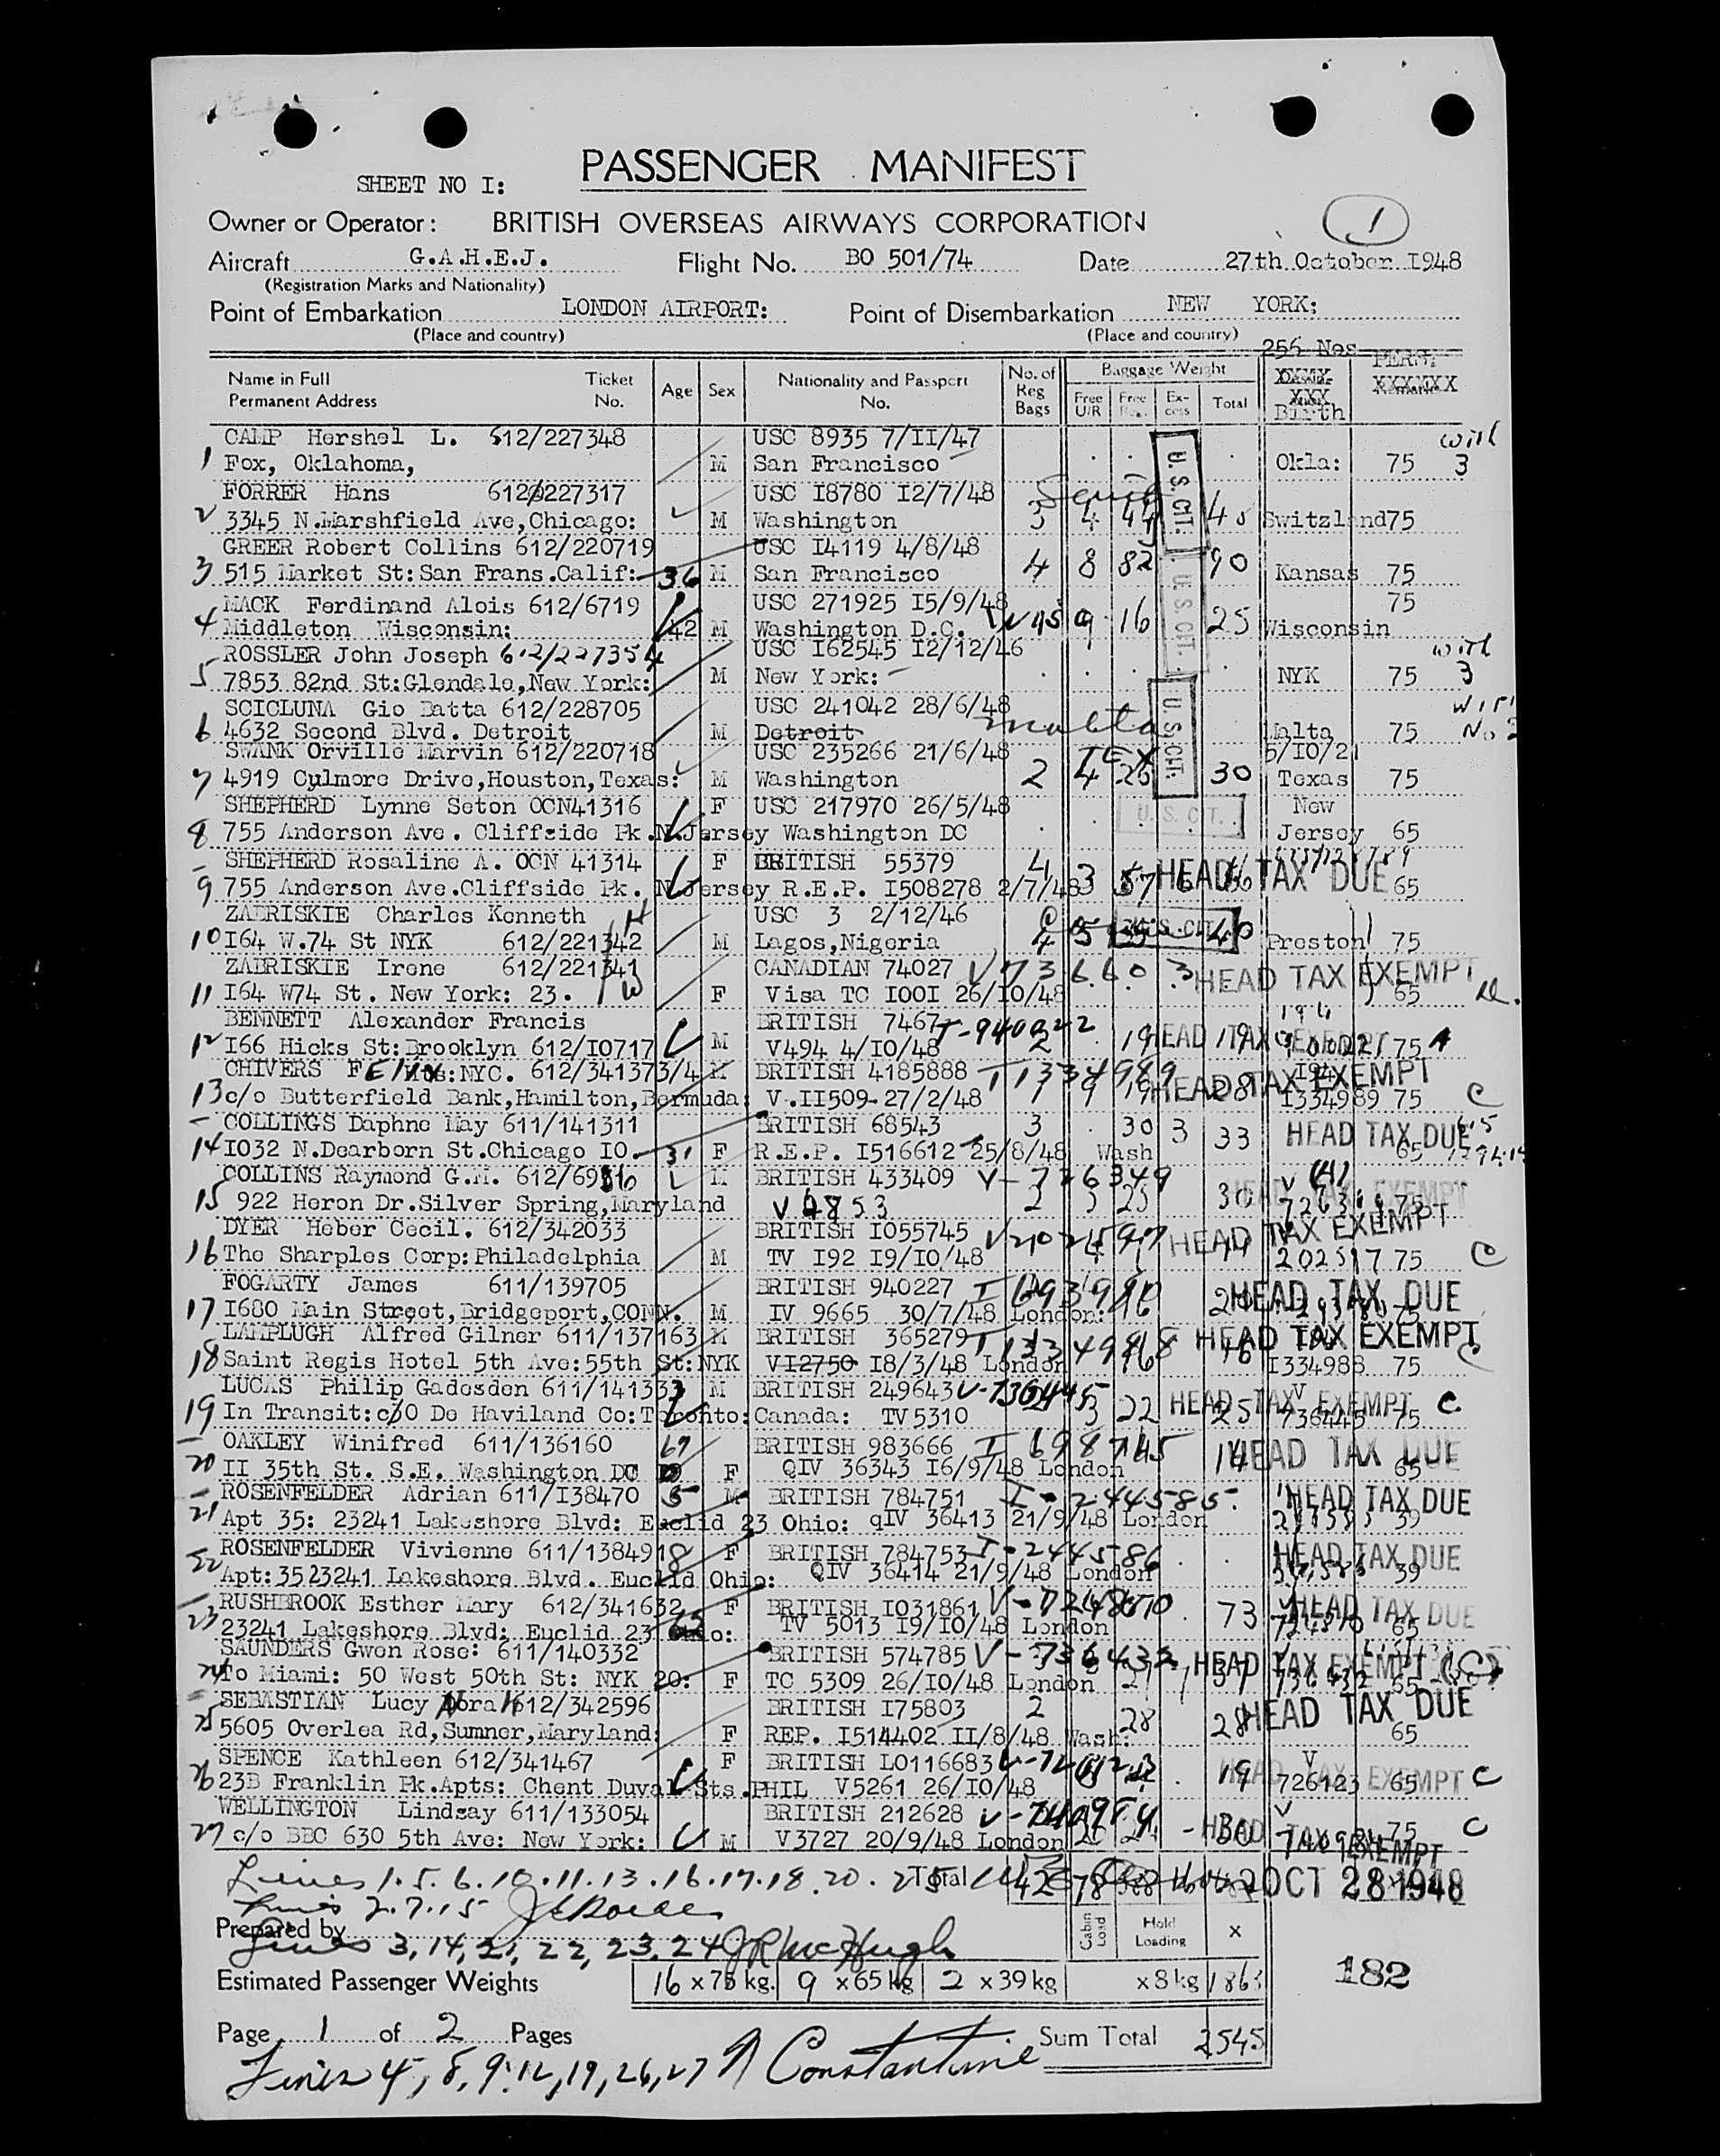 PASSENGER MANIFEST
SHEET NO I:
Owner or Operator: BRITISH OVERSEAS AIRWAYS CORPORATION 1
Aircraft G.A.H.E.J. Flight No. BO 501/74 Date 27th October 1948
(Registration Marks and Nationality)
Point of Embarkation LONDON AIRPORT: Point of Disembarkation NEW YORK;
(Place and country) (Place and country)
256 Nos
Name in Full Ticket Age Sex Nationality and Passport No. of Baggage Weight
Permanent Address No. No. Reg Bags Free U/R Free Ex-cess Total Birth
CAMP Hershel L. 612/227348 USC 8935 7/II/47 with
1 Fox, Oklahoma, M San Francisco Okla: 75 3
FORRER Hans 612/227317 USC I8780 I2/7/48
2 3345 N.Marshfield Ave,Chicago: M Washington 3 4 45 Switzland 75
GREER Robert Collins 612/220719 USC I4119 4/8/48
3 515 Market St:San Frans.Calif: 36 M San Francisco 4 8 82 90 Kansas 75
MACK Ferdinand Alois 612/6719 USC 271925 I5/9/48 75
4 Middleton Wisconsin: 42 M Washington D.C. 9 16 25 Wisconsin
ROSSLER John Joseph 612/227354 USC I62545 I2/12/46 with
5 7853 82nd St:Glendale,New York: M New York: NYK 75 3
SCICLUNA Gio Batta 612/228705 USC 241042 28/6/48 Malta
6 4632 Second Blvd. Detroit M Detroit Malta 75 No 2
SWANK Orville Marvin 612/220718 USC 235266 21/6/48 TEX 5/IO/21
7 4919 Culmore Drive,Houston,Texas: M Washington 2 4 26 30 Texas 75
SHEPHERD Lynne Seton OCN41316 F USC 217970 26/5/48 New
U.S. CIT. U.S. CIT. U.S. CIT. U.S. CIT.
8 755 Anderson Ave. Cliffside Pk.N.Jersey Washington DC Jersey 65
SHEPHERD Rosaline A. OCN 41314 F BRITISH 55379 4
9 755 Anderson Ave.Cliffside Pk. N.Jersey R.E.P. I508278 2/7/48 3 57 HEAD TAX DUE 65
ZABRISKIE Charles Kenneth USC 3 2/12/46
10 I64 W.74 St NYK 612/221342 M Lagos,Nigeria 4 5 35 U.S. CIT. 40 Preston 75
ZABRISKIE Irene 612/221341 CANADIAN 74027 V 73660 3 HEAD TAX EXEMPT
11 I64 W74 St. New York: 23. F Visa TC IOOI 26/IO/48 65
BENNETT Alexander Francis BRITISH 7467 T-940022
12 I66 Hicks St:Brooklyn 612/IO717 M V494 4/IO/48 2 19 HEAD TAX EXEMPT 19 75
CHIVERS Felix NYC. 612/341373/4 M BRITISH 4185888 T1334989 HEAD TAX EXEMPT
13 c/o Butterfield Bank,Hamilton,Bermuda: V.II509 27/2/48 1 9 19 28 I334989 75 C
COLLINGS Daphne May 611/141311 BRITISH 68543 3 30 3 33 HEAD TAX DUE
14 IO32 N.Dearborn St.Chicago IO. 31 F R.E.P. I516612 25/8/48 Wash 65
COLLINS Raymond G.M. 612/6986 M BRITISH 433409 V-726349
15 922 Heron Dr.Silver Spring,Maryland V 4853 2 5 25 30 HEAD TAX EXEMPT 75
DYER Heber Cecil. 612/342033 BRITISH IO55745 V202597 HEAD TAX EXEMPT
16 The Sharples Corp:Philadelphia M TV I92 I9/IO/48 202597 75 C
FOGARTY James 611/139705 BRITISH 940227 HEAD TAX DUE
17 I680 Main Street,Bridgeport,CONN. M IV 9665 30/7/48 London: 75
LAMPLUGH Alfred Gilner 611/137163 M BRITISH 365279 T1334988 HEAD TAX EXEMPT
18 Saint Regis Hotel 5th Ave:55th St:NYK VI2750 I8/3/48 London 16 I334988 75 C
LUCAS Philip Gadesden 611/141333 M BRITISH 249643 V-736445 HEAD TAX EXEMPT C
19 In Transit:c/O De Haviland Co:Toronto:Canada: TV5310 3 22 25 736445 75
OAKLEY Winifred 611/136160 67 BRITISH 983666 I 698745 HEAD TAX DUE
20 II 35th St. S.E. Washington DC F QIV 36343 I6/9/48 London 14 65
ROSENFELDER Adrian 611/I38470 5 M BRITISH 784751 I-244585 HEAD TAX DUE
21 Apt 35: 23241 Lakeshore Blvd: Euclid 23 Ohio: qIV 36413 21/9/48 London 39
ROSENFELDER Vivienne 611/138491 8 F BRITISH 784753 I-244586 HEAD TAX DUE
22 Apt:35 23241 Lakeshore Blvd. Euclid Ohio: QIV 36414 21/9/48 London 39
RUSHBROOK Esther Mary 612/341632 F BRITISH IO31861 V-724870 73 HEAD TAX DUE
23 23241 Lakeshore Blvd: Euclid 23 Ohio: TV 5013 I9/IO/48 London 65
SAUNDERS Gwen Rose: 611/140332 BRITISH 574785 V-736432 HEAD TAX EXEMPT
24 To Miami: 50 West 50th St: NYK 20: F TC 5309 26/IO/48 London 736432 65
SEBASTIAN Lucy Nora 612/342596 BRITISH I75803 2 HEAD TAX DUE
25 5605 Overlea Rd,Sumner,Maryland: F REP. I514402 II/8/48 Wash: 28 28 65
SPENCE Kathleen 612/341467 F BRITISH LO116683 V-726123 HEAD TAX EXEMPT C
26 23B Franklin Pk.Apts: Chent Duval Sts.PHIL V5261 26/IO/48 19 726123 65
WELLINGTON Lindsay 611/133054 BRITISH 212628 V-740984
27 c/o BBC 630 5th Ave: New York: M V3727 20/9/48 London 30 HEAD TAX EXEMPT 740984 75 C
Lines 1.5.6.10.11.13.16.17.18.20.25 Total 42 78 OCT 28 1948
Lines 2.7.15
Prepared by Cabin Load Hold Loading x
Lines 3,14,21,22,23,24 JR McHugh
182
Estimated Passenger Weights 16 x 75 kg. 9 x 65 kg 2 x 39 kg x 8 kg 1863
Page 1 of 2 Pages Sum Total 2545
Lines 4, 8, 9, 12, 19, 26, 27 Constantine